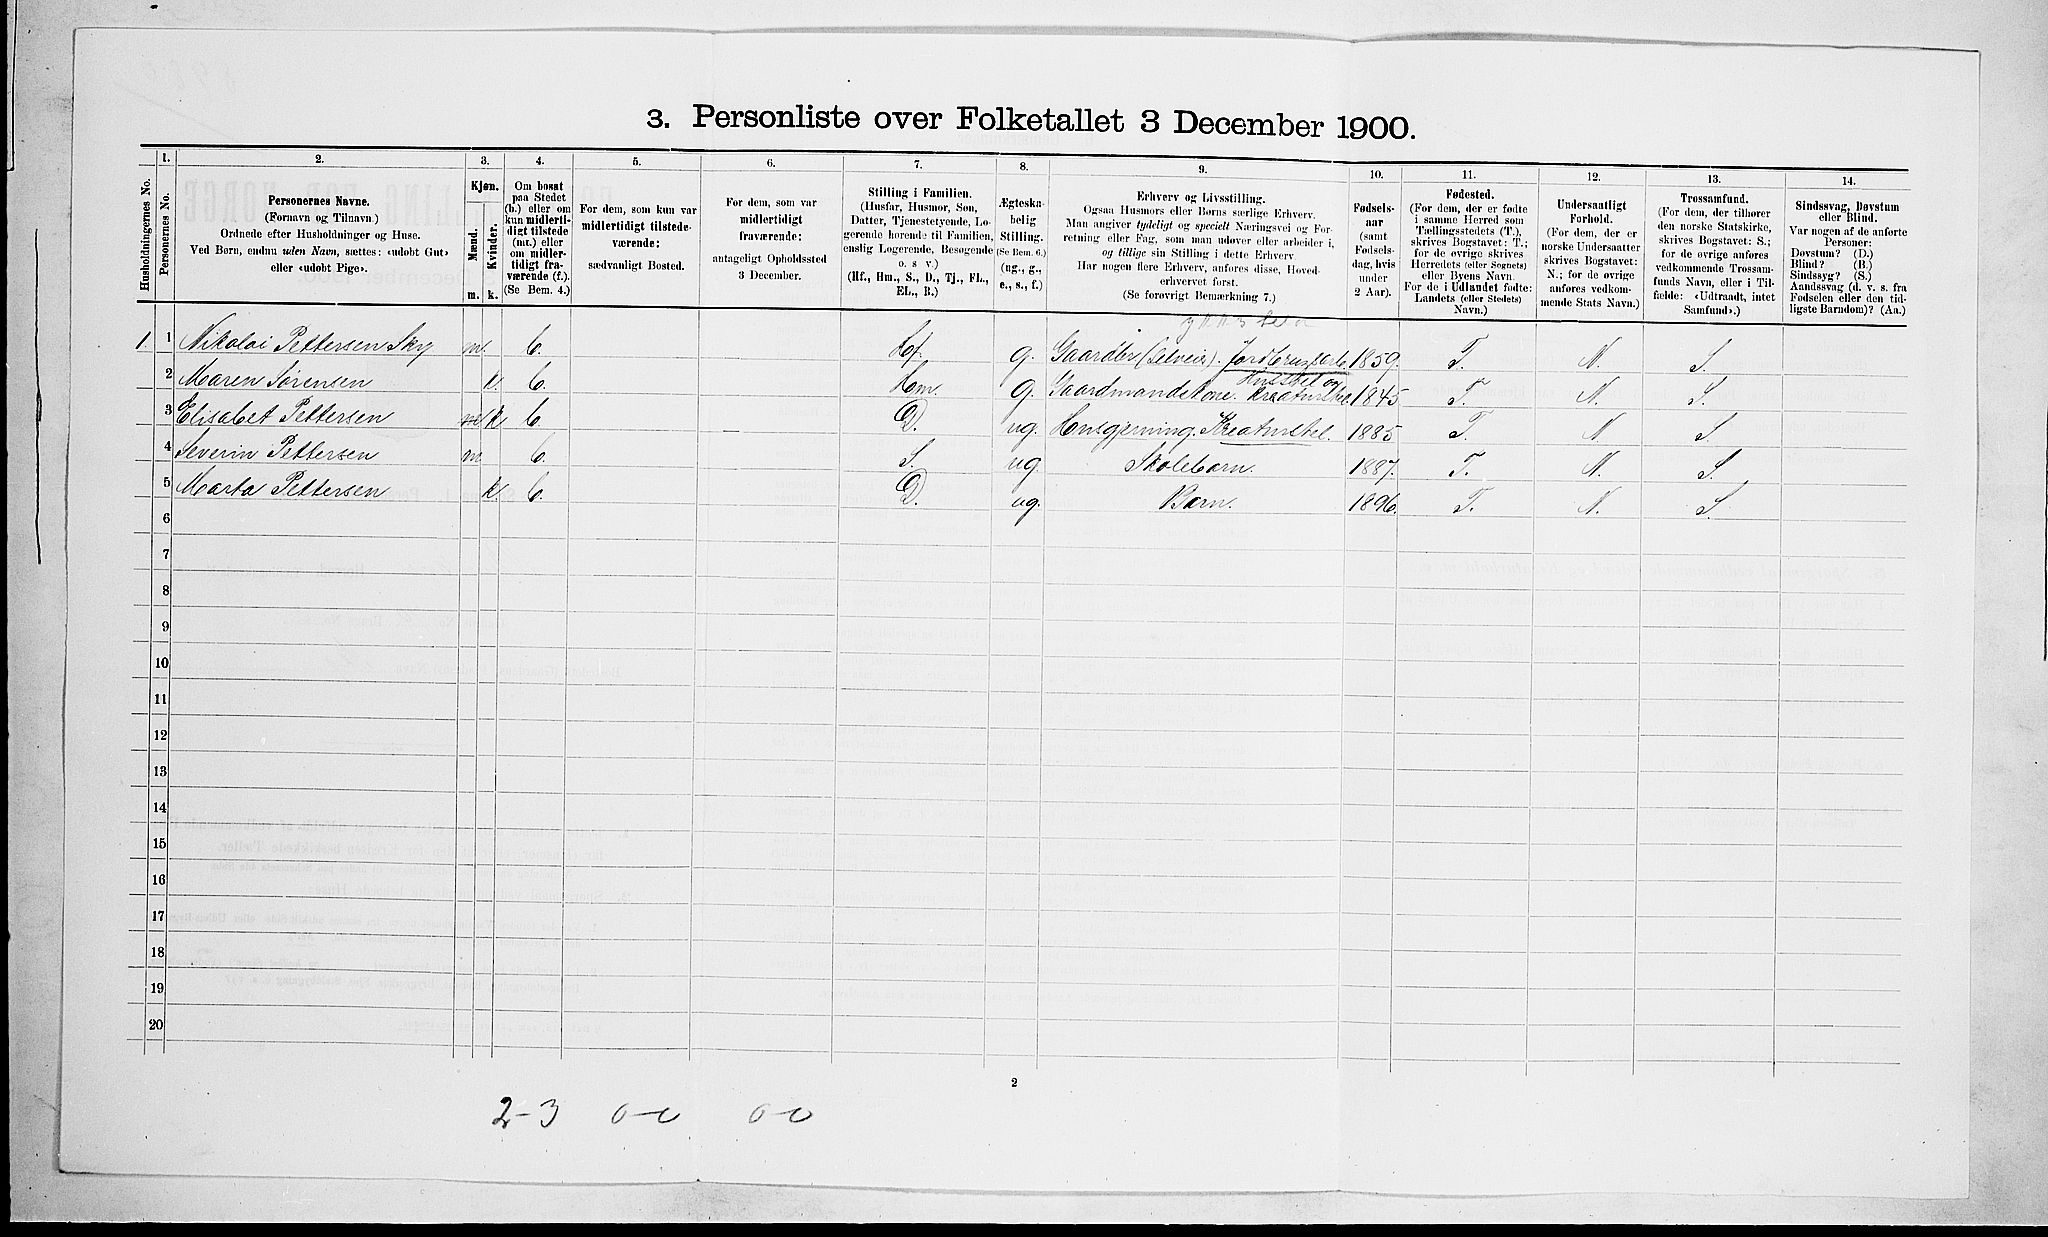 3. Personliste over Folketallet 3 December 1900.
Husholdningernes No.
1.
Personernes No.
2.
Personernes Navne.
(Fornavn og Tilnavn.)
Ordnede efter Husholdninger og Huse.
Ved Børn, endnu uden Navn, sættes: «udøbt Gut»
eller «udøbt Pige».
3.
Kjøn.
Mænd.
Kvinder.
m.
k.
4.
Om bosat
paa Stedet
(b.) eller om
kun midlerti-
digt tilstede
(mt.) eller
om midler-
tidigt fra-
værende (f.).
(Se Bem. 4.)
5.
For dem, som kun var
midlertidigt tilstede-
værende:
sædvanligt Bosted.
6.
For dem, som var
midlertidigt
fraværende:
antageligt Opholdssted
3 December.
7.
Stilling i Familien.
(Husfar, Husmor, Søn,
Datter, Tjenestetyende, Lo-
gerende hørende til Familien,
enslig Logerende, Besøgende
o. s v.)
(Hf., Hm., S., D., Tj., FL.,
EL., B.)
8.
Ægteska-
belig
Stilling.
(Se Bem. 6.)
(ug., g.,
e., s., f.)
9.
Erhverv og Livsstilling.
Ogsaa Husmors eller Børns særlige Erhverv.
Man angiver tydeligt og specielt Næringsvei og For-
retning eller Fag, som man udøver eller arbeider i,
og tillige sin Stilling i dette Erhverv.
Har nogen flere Erhverv, anføres disse, Hoved-
erhvervet først.
(Se forøvrigt Bemærkning 7.)
10.
Fødsels-
aar
(samt
Fødsels-
dag, hvis
under
2 Aar).
11.
Fødested.
(For dem, der er fødte
i samme Herred som
Tællingsstedets (T.),
skrives Bogstavet: T.;
for de øvrige skrives
Herredets (eller Sognets)
eller Byens Navn.
For de i Udlandet fødte:
Landets (eller Stedets)
Navn.)
12.
Undersaatligt
Forhold.
(For dem, der er
norske Undersaatter
skrives Bogstavet:
N.; for de øvrige
anføres vedkom-
mende Stats Navn.)
13.
Trossamfund.
(For dem, der tilhører
den norske Statskirke,
skrives Bogstavet: S.;
for de øvrige anføres
vedkommende Trossam-
funds Navn, eller i Til-
fælde: «Udtraadt, intet
Samfund».)
14.
Sindssvag, Døvstum
eller Blind.
Var nogen af de anførte
Personer:
Døvstum? (D.)
Blind? (B.)
Sindssyg? (S.)
Aandssvag (d. v. s. fra
Fødselen eller den tid-
ligste Barndom)? (Aa.)
1. 1 Nikolai Pettersen Sky m. b. Hf. g. Gaardbr. (selveier). Jordbrugsarb. 1859. T. N. S.
2 Maren Sørensen k. b. Hm. g. Gaardmandskone. Husstel og Kreaturstel 1845 T. N. S.
3 Elisabet Pettersen k b. D. ug. Husgjerning. Kreaturstel. 1885 T. N. S.
4 Severin Pettersen m b. S. ug. Skolebarn. 1887. T. N. S.
5 Marta Pettersen k. b. D. ug. Barn. 1896. T. N. S.
6
7
8
9
10
11
12
13
14
15
16
17
18
19
20
2
2-3 0-0 0-0